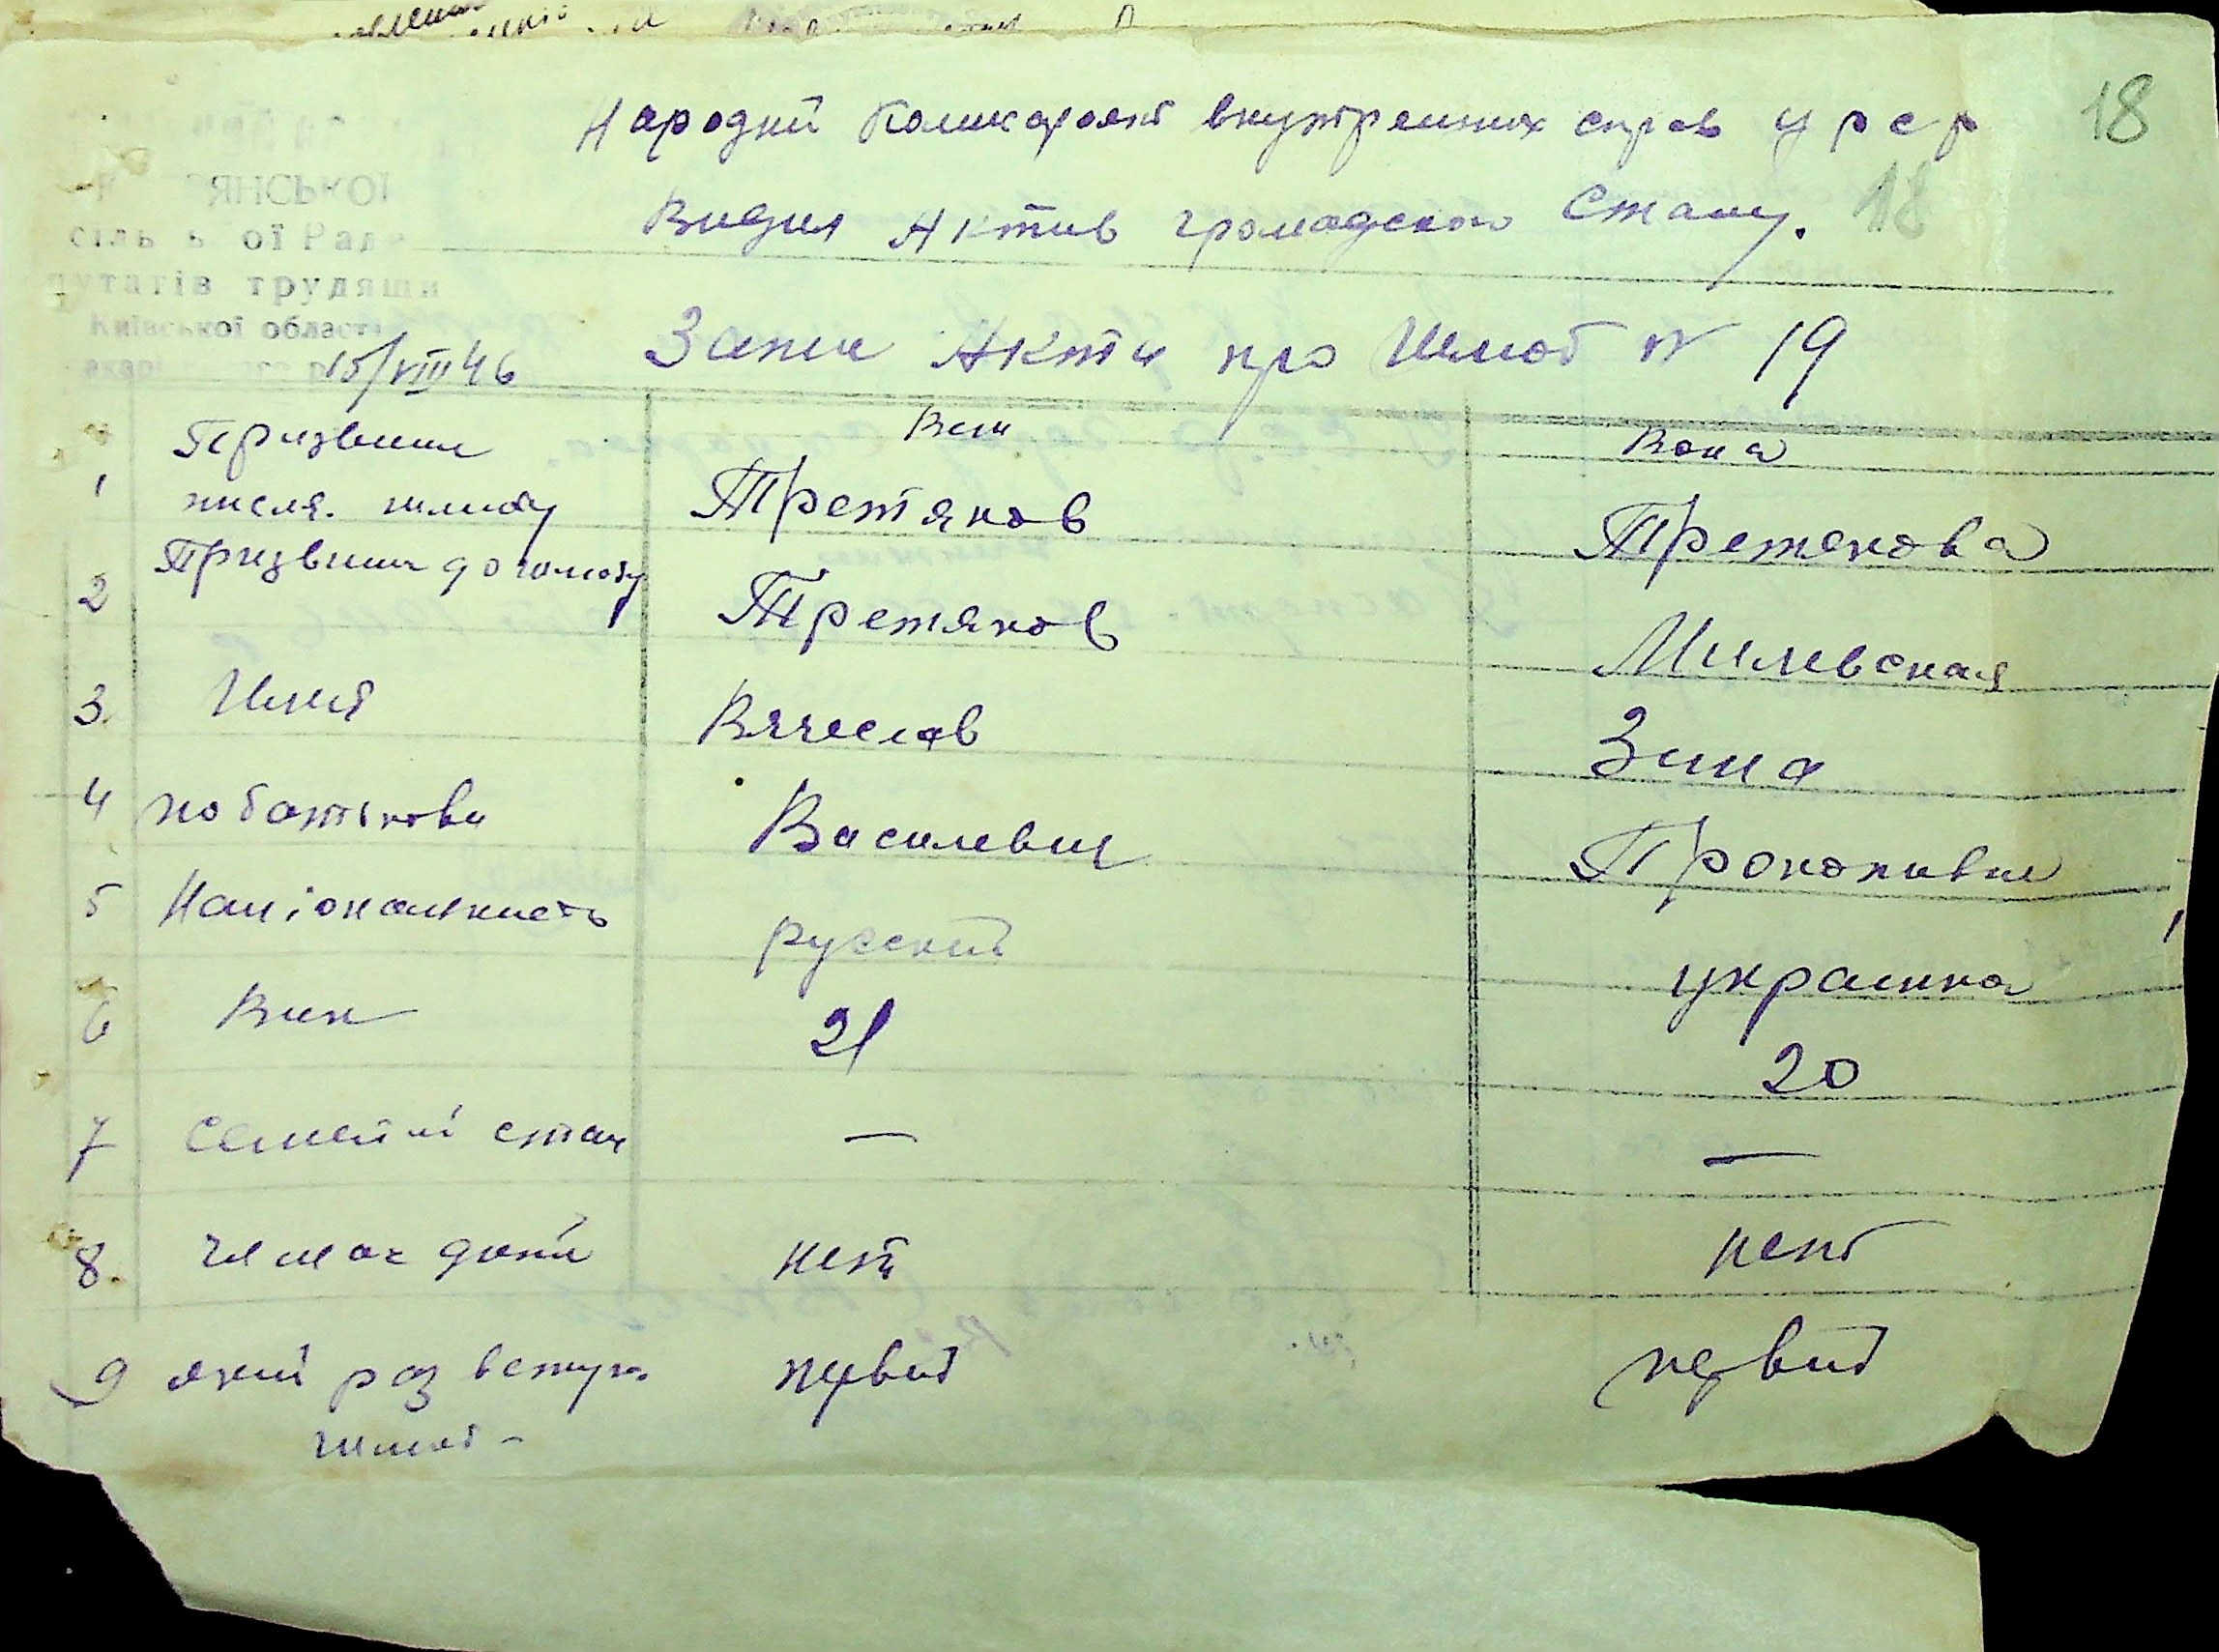 18
Народний Комисариат внутренних справ УРСР
18
Видил Актив громадского Стану.
ЯНСЬКОЇ
путатів трудящи
Київської област
15/VIII 46
Запис Акти про Шлюб № 19
Вин
Вона
1 Призвище писля. шлюбу Третяков Третякова
2 Призвище до шлюбу Третяков Милевская
3. Имя Вячеслав Зина
4 по батькови Василевич Прокопивна
5 Национальнисть русский украинка
6 Вик 21 20
7 Семейний стан — —
8. чи має дити нет нет
9 який раз вступа первий первий
шлюб -